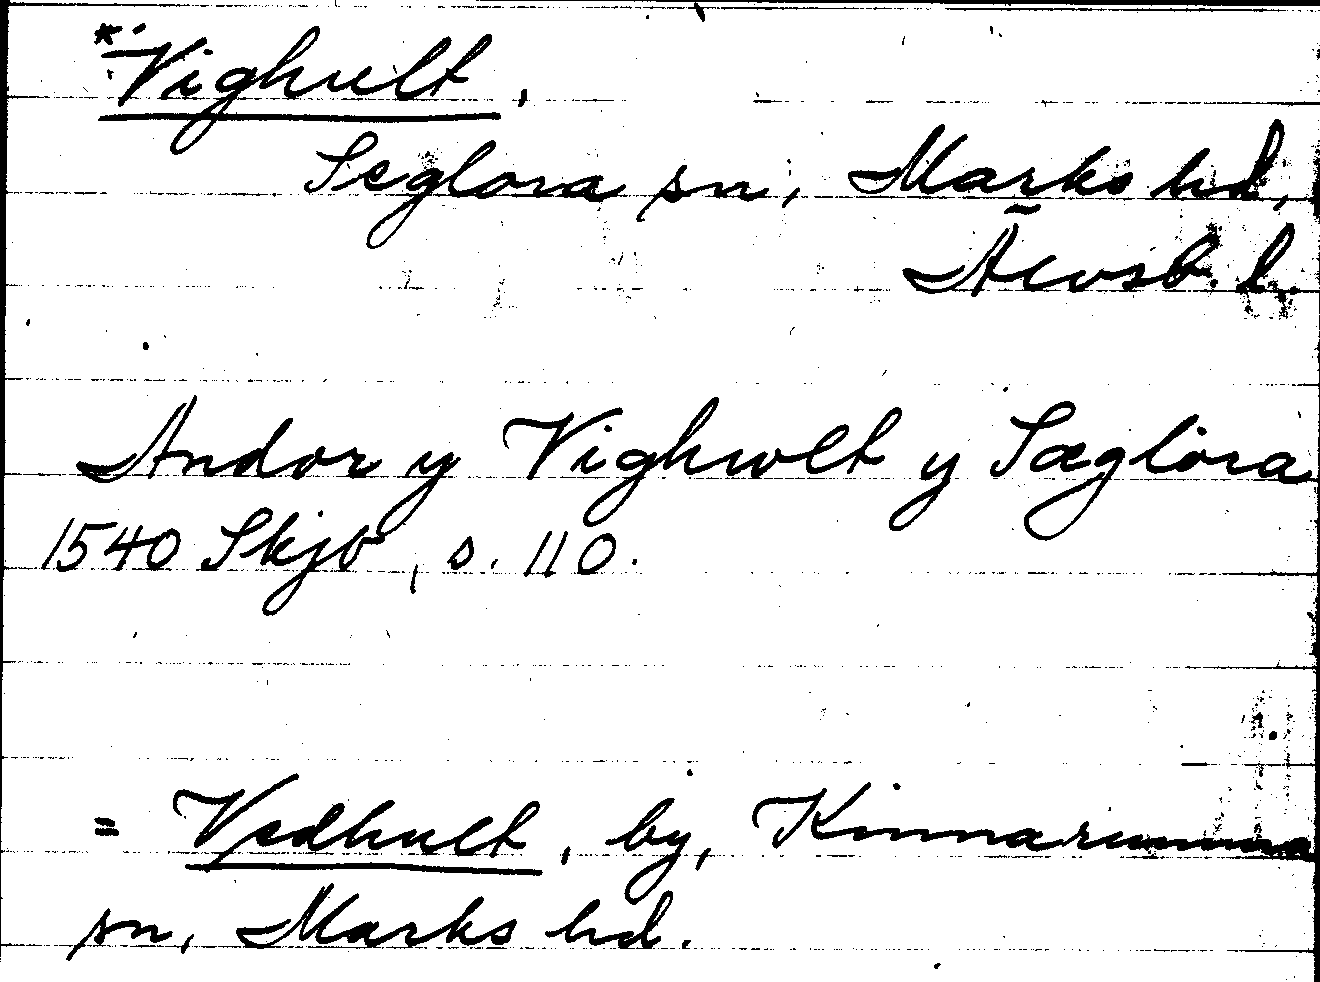 *Vighult,
Seglora sn, Marks hd,
Älvsb. l.
Andor y Vighwlt y Sæglöra
1540 Skjb, s. 110.
= Vedhult, by, Kinnarumma
sn, Marks hd.